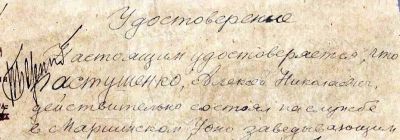 Удостоверение
Настоящим удостоверяется, что
Застушенко, Алексей Николаевич,
действительно состоял на службе
в Мариинском Уоно заведывающим